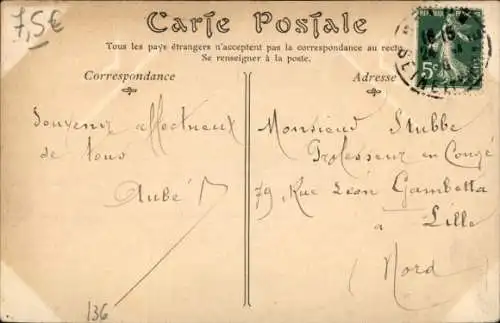 7,5€
Carte Postale
Tous les pays étrangers n'acceptent pas la correspondance au recto
Se renseigner à la poste.
Correspondance
Adresse
5c
Souvenir affectueux
de tous
Aubé
Monsieur Stubbe
Professeur en Congé
79, Rue Léon Gambetta
à
Lille
(Nord)
136